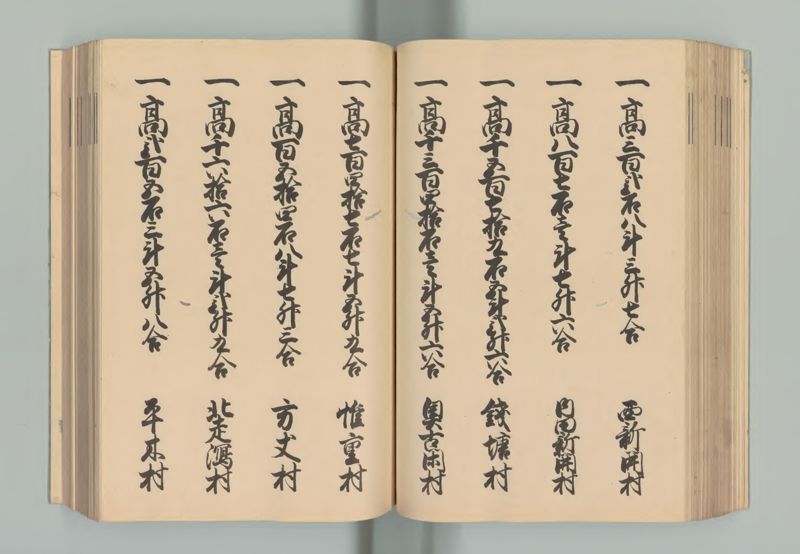 一高三百弐石八斗三升七合 西新開村
一高八百七石壱斗七升六合 内田新開村
一高千五百七拾九石五斗弐升六合 銭塘村
一高千三百四拾石壱斗五升六合 奥古閑村
一高七百四拾七石七斗五升九合 惟重村
一高百五拾四石八斗七升三合 方丈村
一高千六拾六石壱斗弐升九合 北走潟村
一高弐百五石三斗五升八合 平木村